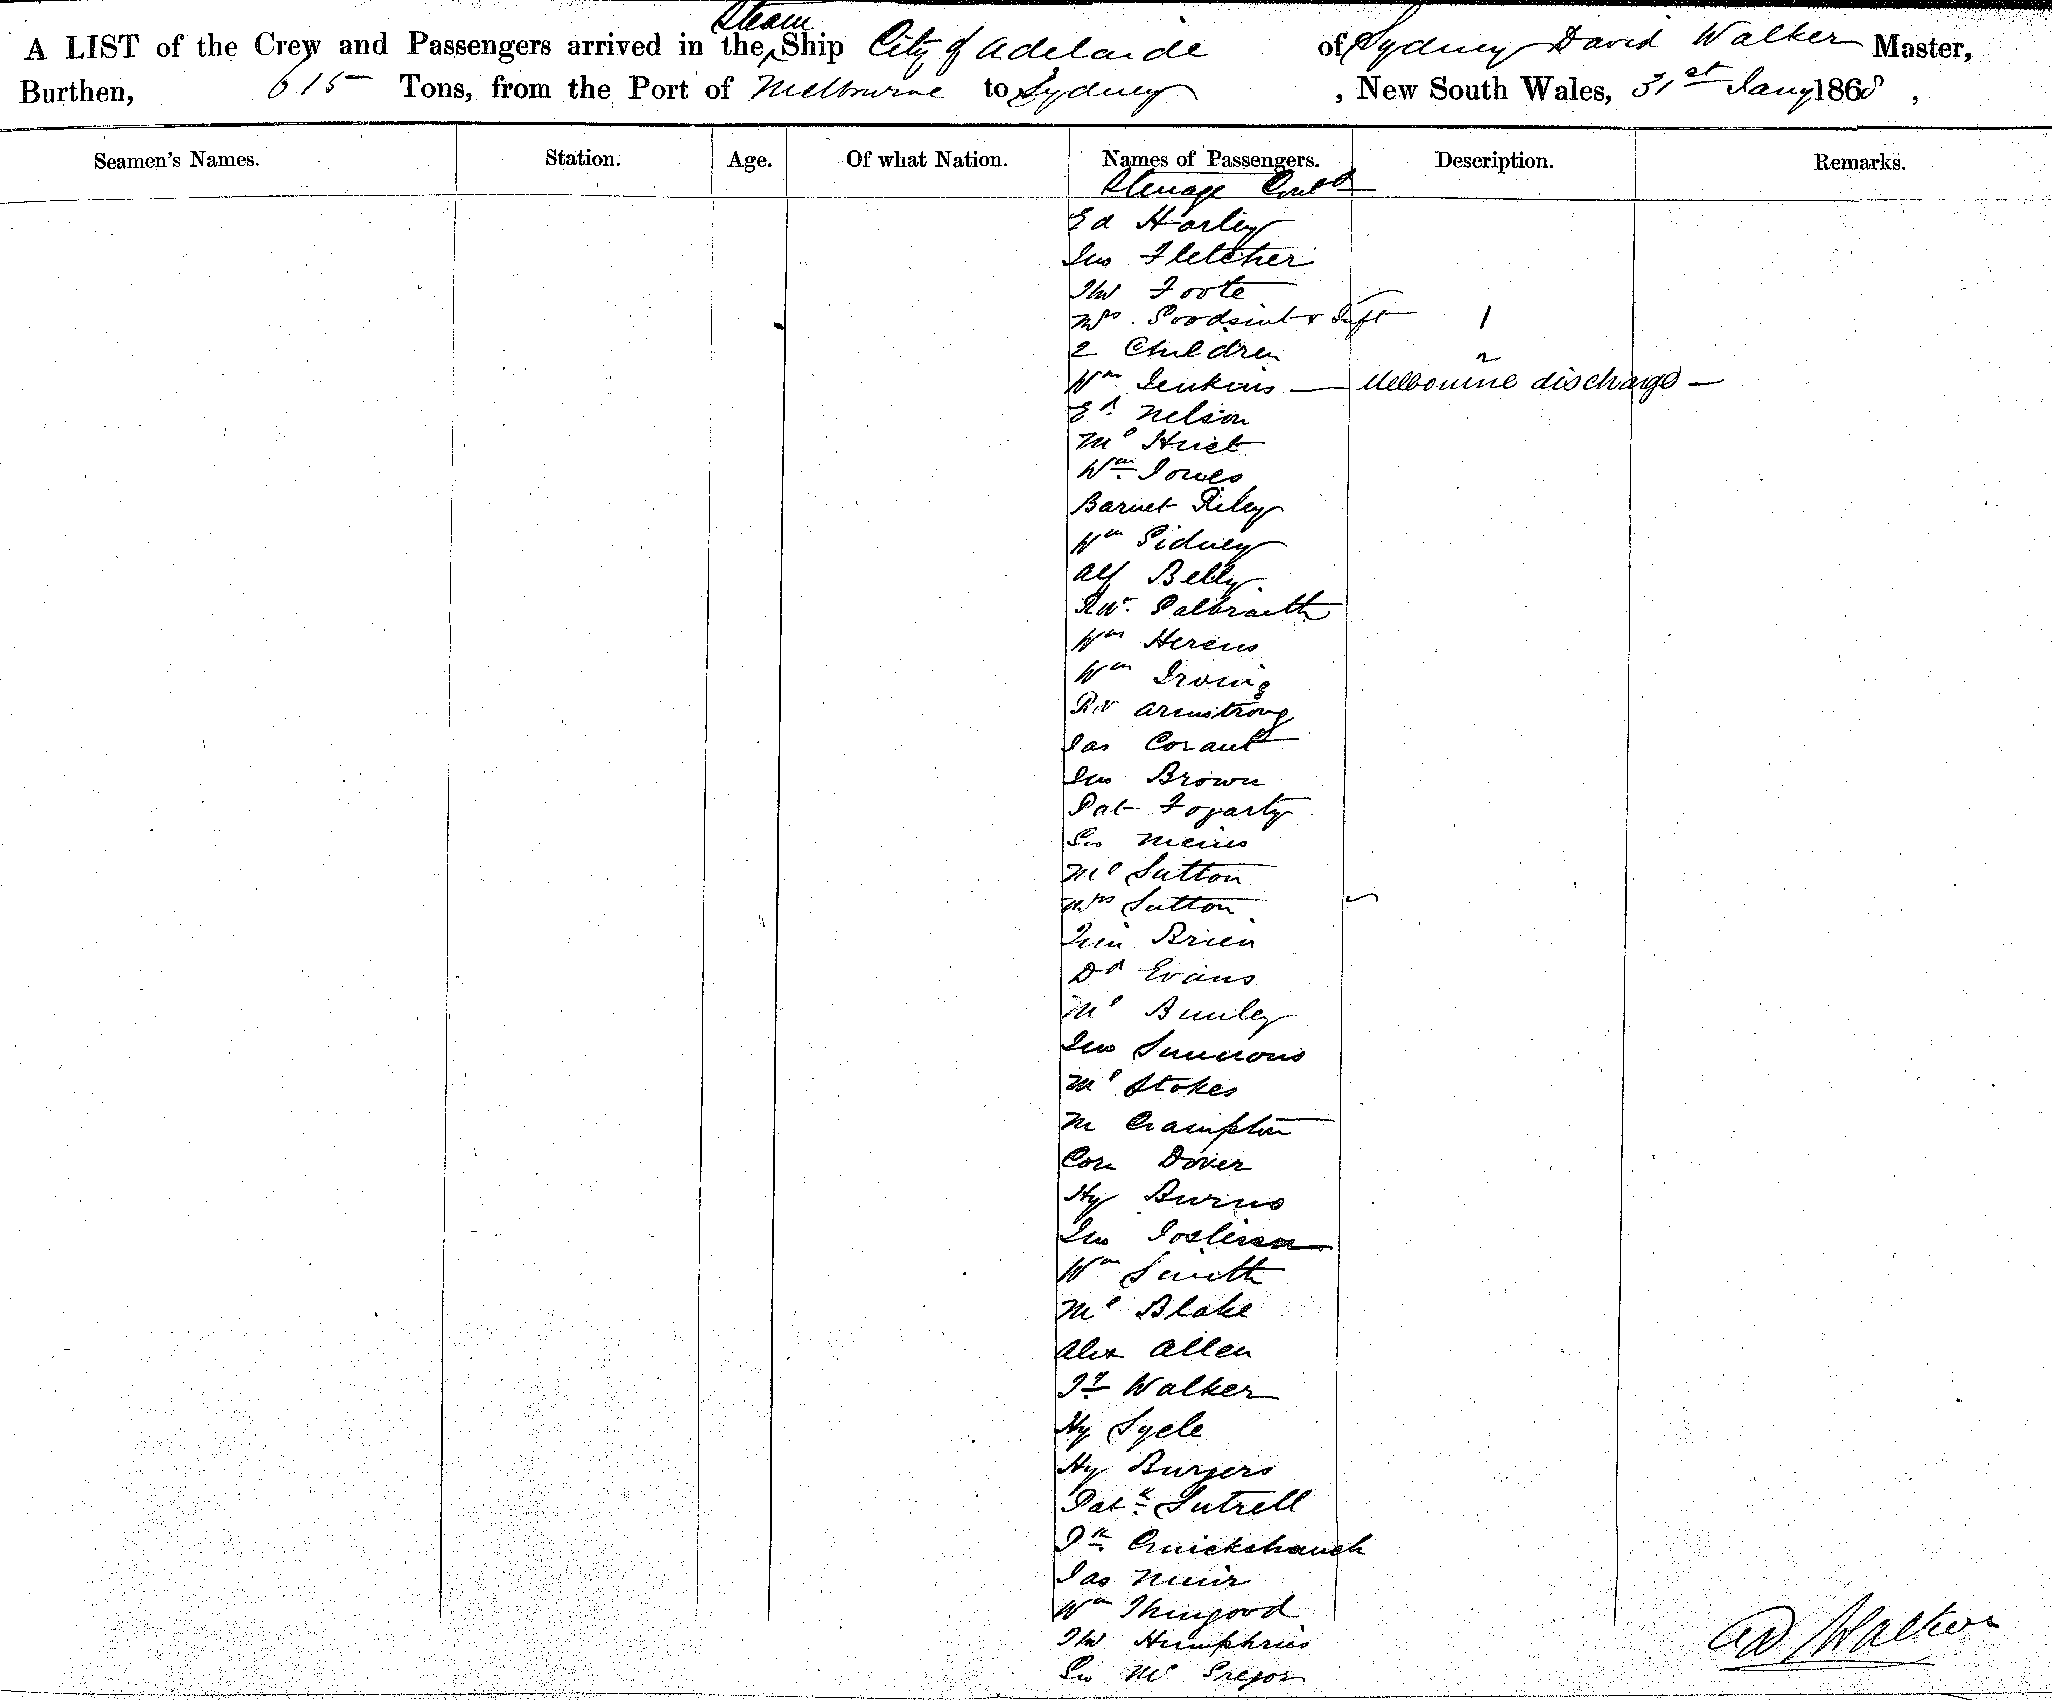 A LIST of the Crew and Passengers arrived in the Steam Ship City of Adelaide of Sydney David Walker Master,
Burthen, 615 Tons, from the Port of Melbourne to Sydney, New South Wales, 31st Jany 1868,
Seamen's Names. Station. Age. Of what Nation. Names of Passengers. Description. Remarks.
Steerage Contd
Ed Harley
Jno Fletcher
Thos Foote
Mrs & Inft 1
2 Children 2
Wm Jenkins — Melbourne discharge —
Ed. Nelson
Mr
Wm Jones
Barnet Riley
Wm Sidney
Alf Belly
Rt. Galbraith
Wm
Wm Irving
Rt Armstrong
Jas
Jno Brown
Pat Fogarty
Geo
Mr Sutton
Mrs Sutton
Brien
Dd Evans
Mr
Jno Simmons
Mr Stokes
M Crampton
Corn Dover
Hy Burns
Jno
Wm Smith
Mr Blake
Alex Allen
Walker
Hy
Hy Burgers
Patk Sutrell
Jas Muir
Wm Thingood
Humphries
Geo McGregor
D Walker